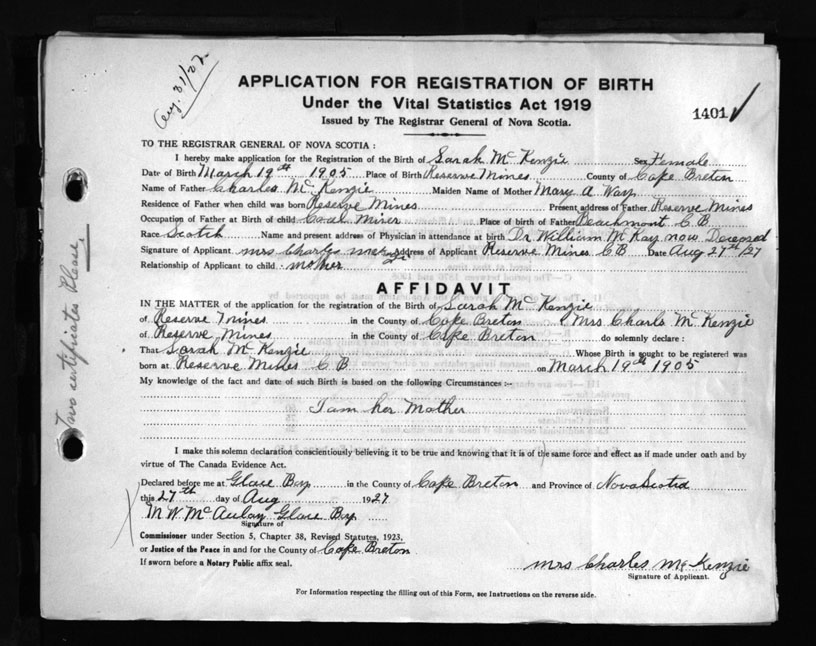 Aug. 31/27.
APPLICATION FOR REGISTRATION OF BIRTH
Under the Vital Statistics Act 1919
Issued by The Registrar General of Nova Scotia.
1401 ✓
TO THE REGISTRAR GENERAL OF NOVA SCOTIA:
I hereby make application for the Registration of the Birth of Sarah McKenzie Sex Female
Date of Birth March 19th 1905 Place of Birth Reserve Mines County of Cape Breton
Name of Father Charles McKenzie Maiden Name of Mother Mary A Way
Residence of Father when child was born Reserve Mines Present address of Father Reserve Mines
Occupation of Father at Birth of child Coal Miner Place of birth of Father Beachmont C.B
Race Scotch Name and present address of Physician in attendance at birth Dr William McKay now Deceased
Signature of Applicant Mrs Charles McKenzie Address of Applicant Reserve Mines CB Date Aug 27th/27
Relationship of Applicant to child mother
AFFIDAVIT
IN THE MATTER of the application for the registration of the Birth of Sarah McKenzie
of Reserve Mines in the County of Cape Breton I Mrs Charls McKenzie
of Reserve Mines in the County of Cape Breton do solemnly declare:
That Sarah McKenzie Whose Birth is sought to be registered was
born at Reserve Mines C B on March 19th 1905
My knowledge of the fact and date of such Birth is based on the following Circumstances :-
I am her Mother
I make this solemn declaration conscientiously believing it to be true and knowing that it is of the same force and effect as if made under oath and by
virtue of The Canada Evidence Act.
Declared before me at Glace Bay in the County of Cape Breton and Province of Nova Scotia
this 27th day of Aug 1927
M W McAulay Glace Bay
Signature of
Commissioner under Section 5, Chapter 38, Revised Statutes, 1923,
or Justice of the Peace in and for the County of Cape Breton
If sworn before a Notary Public affix seal.
Mrs Charles McKenzie
Signature of Applicant.
For Information respecting the filling out of this Form, see Instructions on the reverse side.
Two certificates Please.